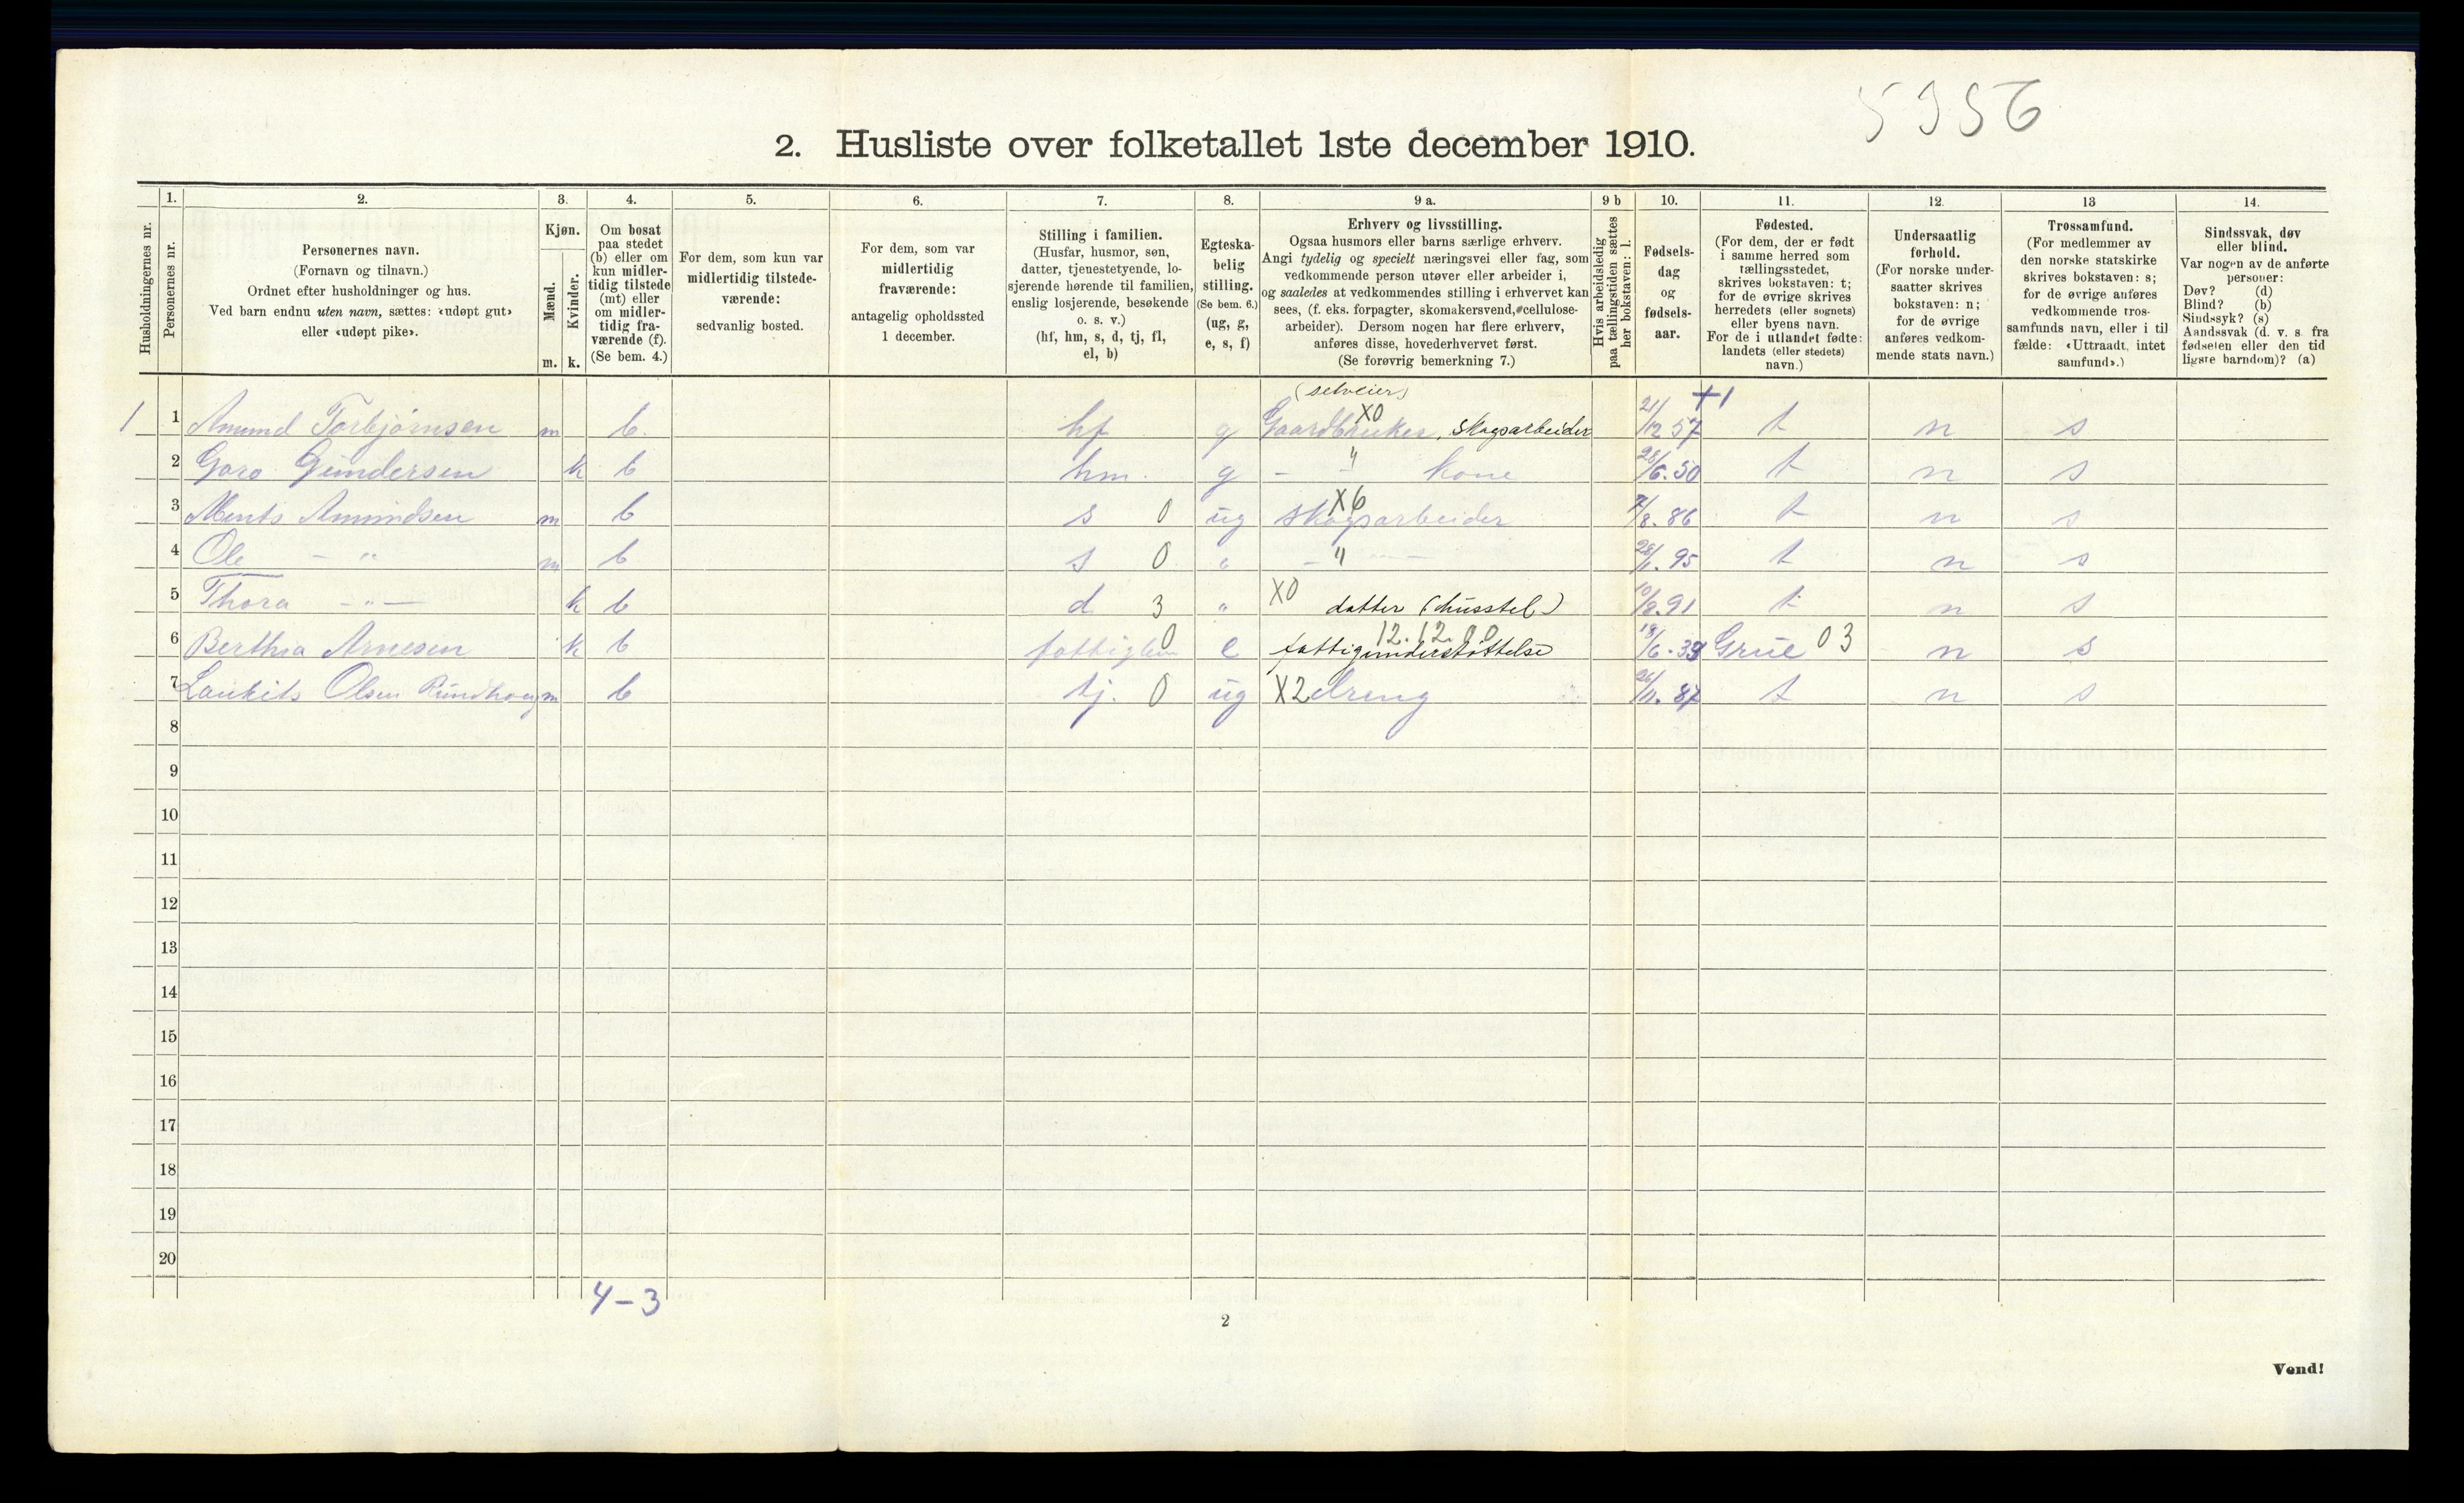 5956
2. Husliste over folketallet 1ste december 1910.
Husholdningernes nr.
1. Personernes nr.
2. Personernes navn. (Fornavn og tilnavn.) Ordnet efter husholdninger og hus. Ved barn endnu uten navn, sættes: «udøpt gut» eller «udøpt pike».
3. Kjøn. Mænd. m. Kvinder. k.
4. Om bosat paa stedet (b) eller om kun midlertidig tilstede (mt) eller om midlertidig fraværende (f). (Se bem. 4.)
5. For dem, som kun var midlertidig tilstedeværende: sedvanlig bosted.
6. For dem, som var midlertidig fraværende: antagelig opholdssted 1 december.
7. Stilling i familien. (Husfar, husmor, søn, datter, tjenestetyende, losjerende hørende til familien, enslig losjerende, besøkende o. s. v.) (hf, hm, s, d, tj, fl, el, b)
8. Egteskabelig stilling. (Se bem. 6.) (ug, g, e, s, f)
9 a. Erhverv og livsstilling. Ogsaa husmors eller barns særlige erhverv. Angi tydelig og specielt næringsvei eller fag, som vedkommende person utøver eller arbeider i, og saaledes at vedkommendes stilling i erhvervet kan sees, (f. eks. forpagter, skomakersvend, cellulosearbeider). Dersom nogen har flere erhverv, anføres disse, hovederhvervet først. (Se forøvrig bemerkning 7.)
9 b Hvis arbeidsledig paa tællingstiden sættes her bokstaven: l.
10. Fødselsdag og fødselsaar.
11. Fødested. (For dem, der er født i samme herred som tællingsstedet, skrives bokstaven: t; for de øvrige skrives herredets (eller sognets) eller byens navn. For de i utlandet fødte: landets (eller stedets) navn.)
12. Undersaatlig forhold. (For norske undersaatter skrives bokstaven: n; for de øvrige anføres vedkommende stats navn.)
13 Trossamfund. (For medlemmer av den norske statskirke skrives bokstaven: s; for de øvrige anføres vedkommende trossamfunds navn, eller i tilfælde: «Uttraadt, intet samfund».)
14. Sindssvak, døv eller blind. Var nogen av de anførte personer: Døv? (d) Blind? (b) Sindssyk? (s) Aandssvak (d. v. s. fra fødselen eller den tidligste barndom)? (a)
(selveier) +1
1 1 Amund Torbjørnsen m b. hf g Gaardbruker, X0 skogsarbeider 21/12 57 t n s
2 Goro Gundersen k b hm. g - " kone 28/6.50 t n s
3 Ments Amundsen m b s 0 ug X6 skogsarbeider 7/8.86 t n s
4 Ole - " m b s 0 " - " - 28/1.95 t n s
5 Thora - " - k b d 3 " X0 datter (husstel) 10/8.91 t n s
6 Berthea Arnesen k b fattiglem 0 e 12.12.00 fattigunderstøttelse 18/6.39 Grue 03 n s
7 Laurits Olsen Rundhaug m b tj. 0 ug X2 dreng 26/11.87 t n s
8
9
10
11
12
13
14
15
16
17
18
19
20
4-3
2
Vend!